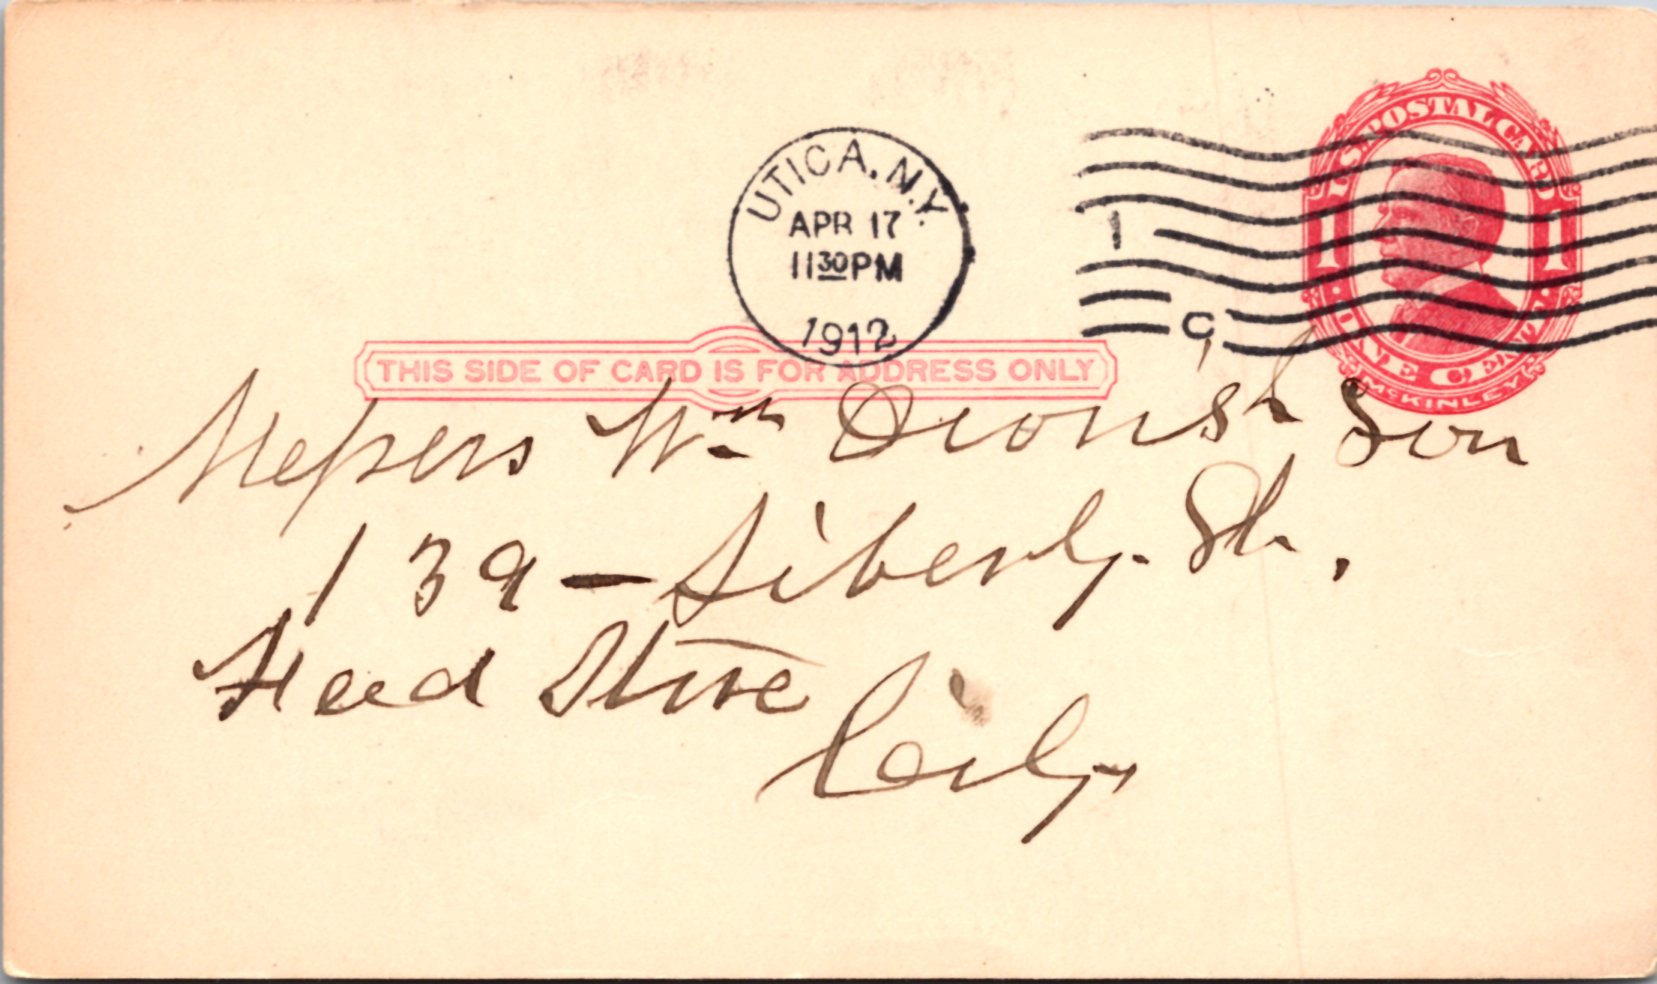 UTICA, N.Y.
APR 17
11 30 PM
1912
1
C
U.S. POSTAL CARD
1 1
ONE CENT
McKINLEY
THIS SIDE OF CARD IS FOR ADDRESS ONLY
Messrs Wm & Son
139 – Liberty St.,
Feed Store
City